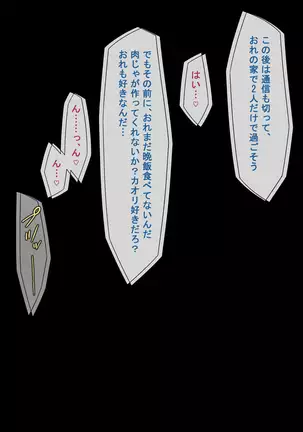 この後は通信も切って、
おれの家で2人だけで過ごそう
はい…♡
でもその前に、おれまだ晩飯食べてないんだ
肉じゃが作ってくれないか？カオリ好きだろ？
おれも好きなんだ…
ん……っ、ん
ん…♡